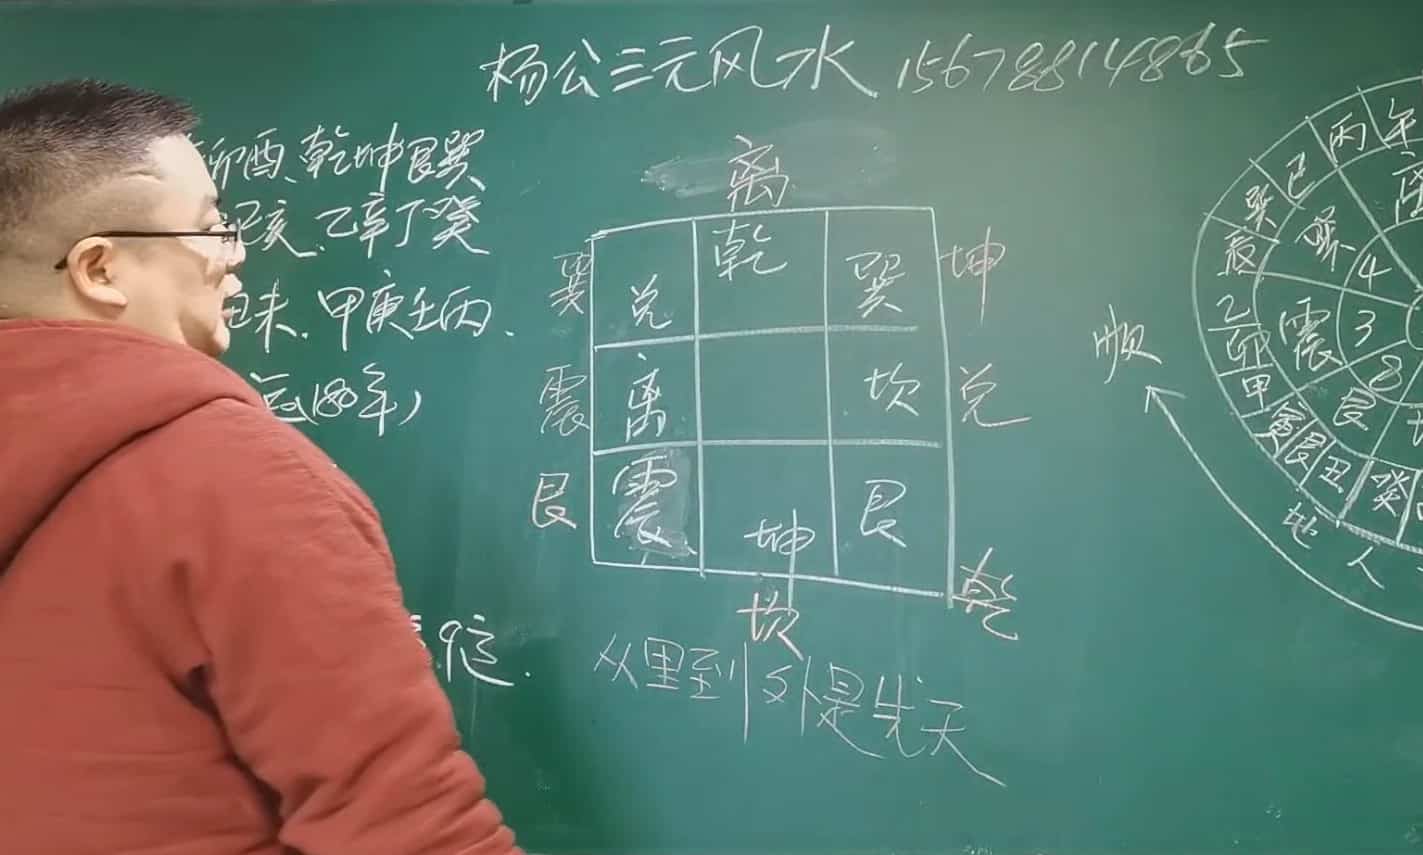 杨公三元风水 15678814865
卯酉、乾坤艮巽
巳亥、乙辛丁癸
丑未、甲庚壬丙、
(180年)
离
巽 兑 乾 巽 坤
震 离 坎 兑
艮 震 坤 艮 乾
坎
从里到外是先天
顺
午
丙
巳
巽
辰
乙
卯
甲
艮
丑
癸
离
震
艮
4
3
8
地
人